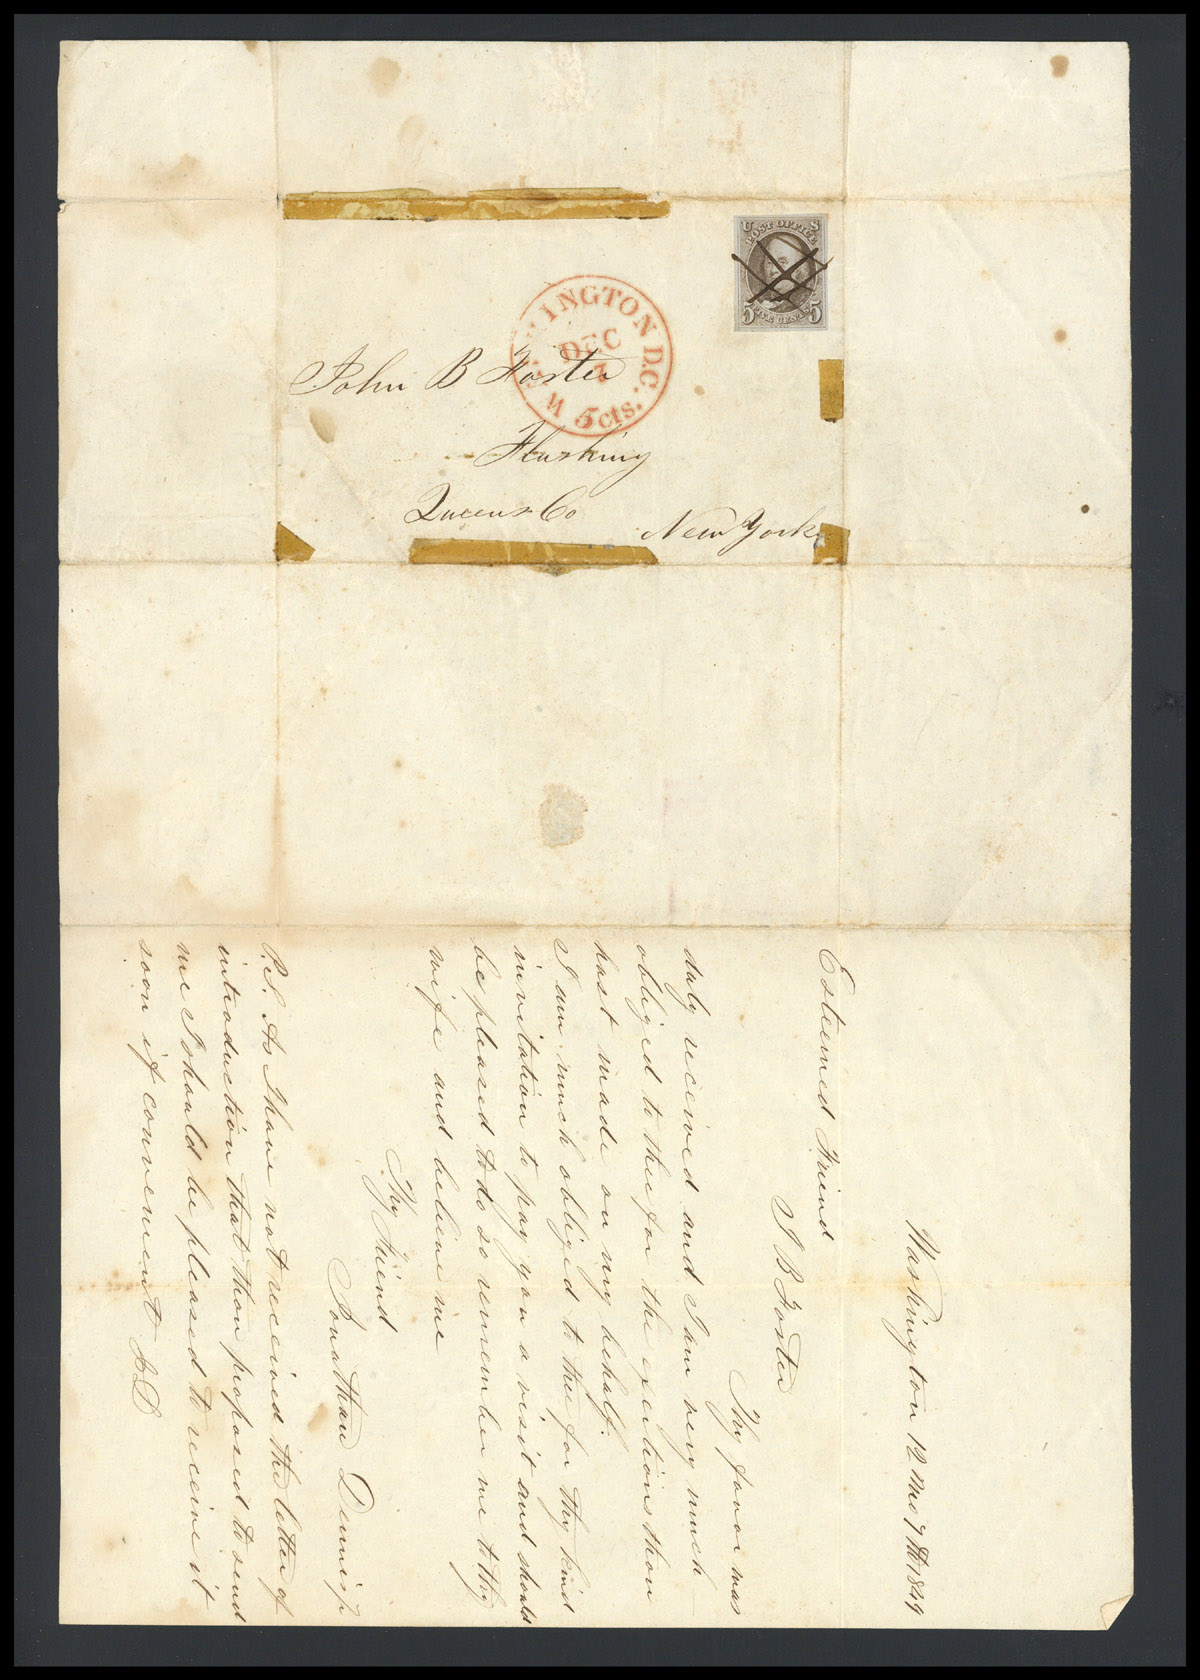 U S
POST OFFICE
5 FIVE CENTS 5
WASHINGTON D.C.
DEC
7
5cts.
John B Foster
Flushing
Queens Co
New York
Washington 12 Mo 7th 1849
Esteemed Friend
J B Foster
Thy favor was
duly received and I am very much
obliged to thee for the exertions thou
hast made on my behalf.
I am much obliged to thee for thy kind
invitation to pay you a visit and should
be pleased to do so remember me to thy
wife and believe me
Thy Friend
Jonathan Dennis Jr
P.S. As I have not received the letter of
introduction that thou proposed to send
me I should be pleased to receive it
soon if convenient J.D